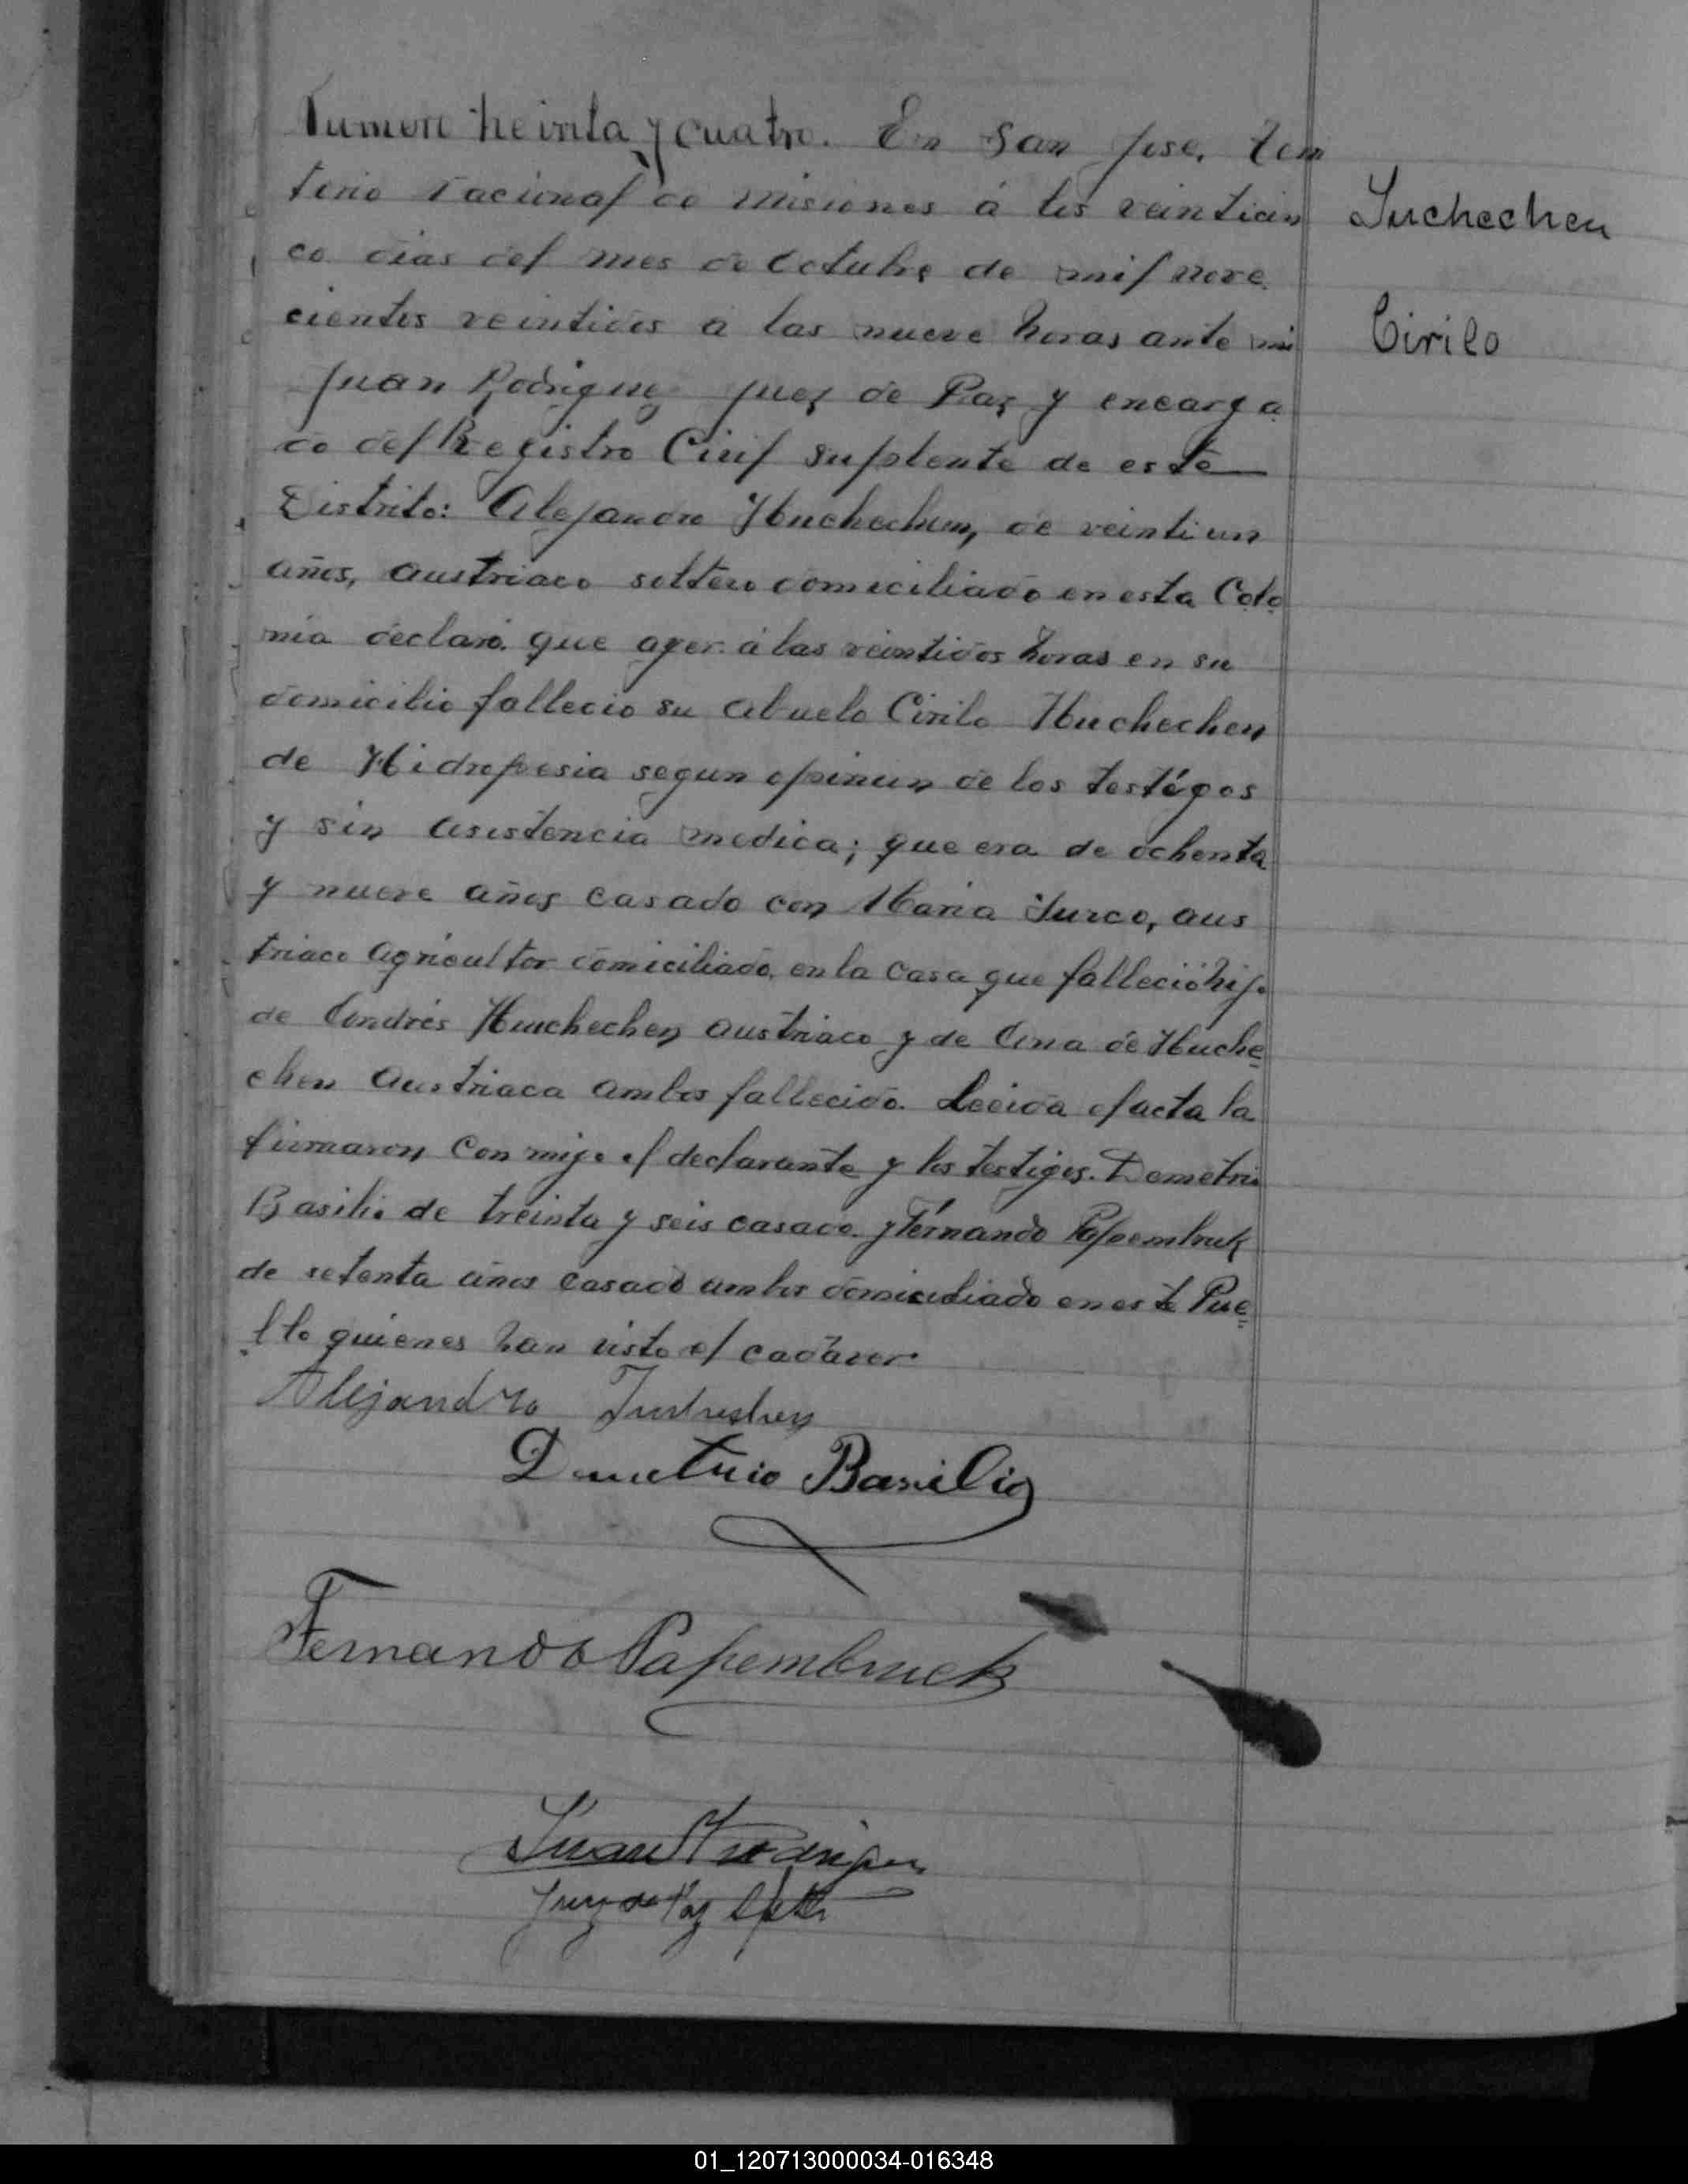 Numero treinta y cuatro. En San Jose, terri
torio nacional de Misiones á los veinticin
co dias del mes de Octubre de mil nove
cientos veintidos a las nueve horas ante mi
Juan Rodriguez Juez de Paz y encarga
do del Registro Civil Suplente de este
Distrito: Alejandro Huchechen, de veintiun
años, austriaco soltero domiciliado en esta Colo
nia declaró. que ayer á las veintidos horas en su
domicilio fallecio su abuelo Cirilo Huchechen
de Hidropesia segun opinion de los testigos
y sin asistencia medica; que era de ochenta
y nueve años casado con Maria Turco, aus
triaco agricultor domiciliado, en la casa que falleció hijo
de Andrés Huchechen austriaco y de Ana de Huche
chen Austriaca ambos fallecido. Leeida el acta la
firmaron conmigo el declarante y los testigos. Demetrio
Basilio de treinta y seis casado. y Fernando Papembruk
de setenta años casado ambos domiciliado en este Pue
blo quienes han visto el cadaver
Alejandro
Demetrio Basilio
Fernando Papembruck
Juan Rodriguez
Juez de Paz Splte
Suchechen
Cirilo
01_120713000034-016348